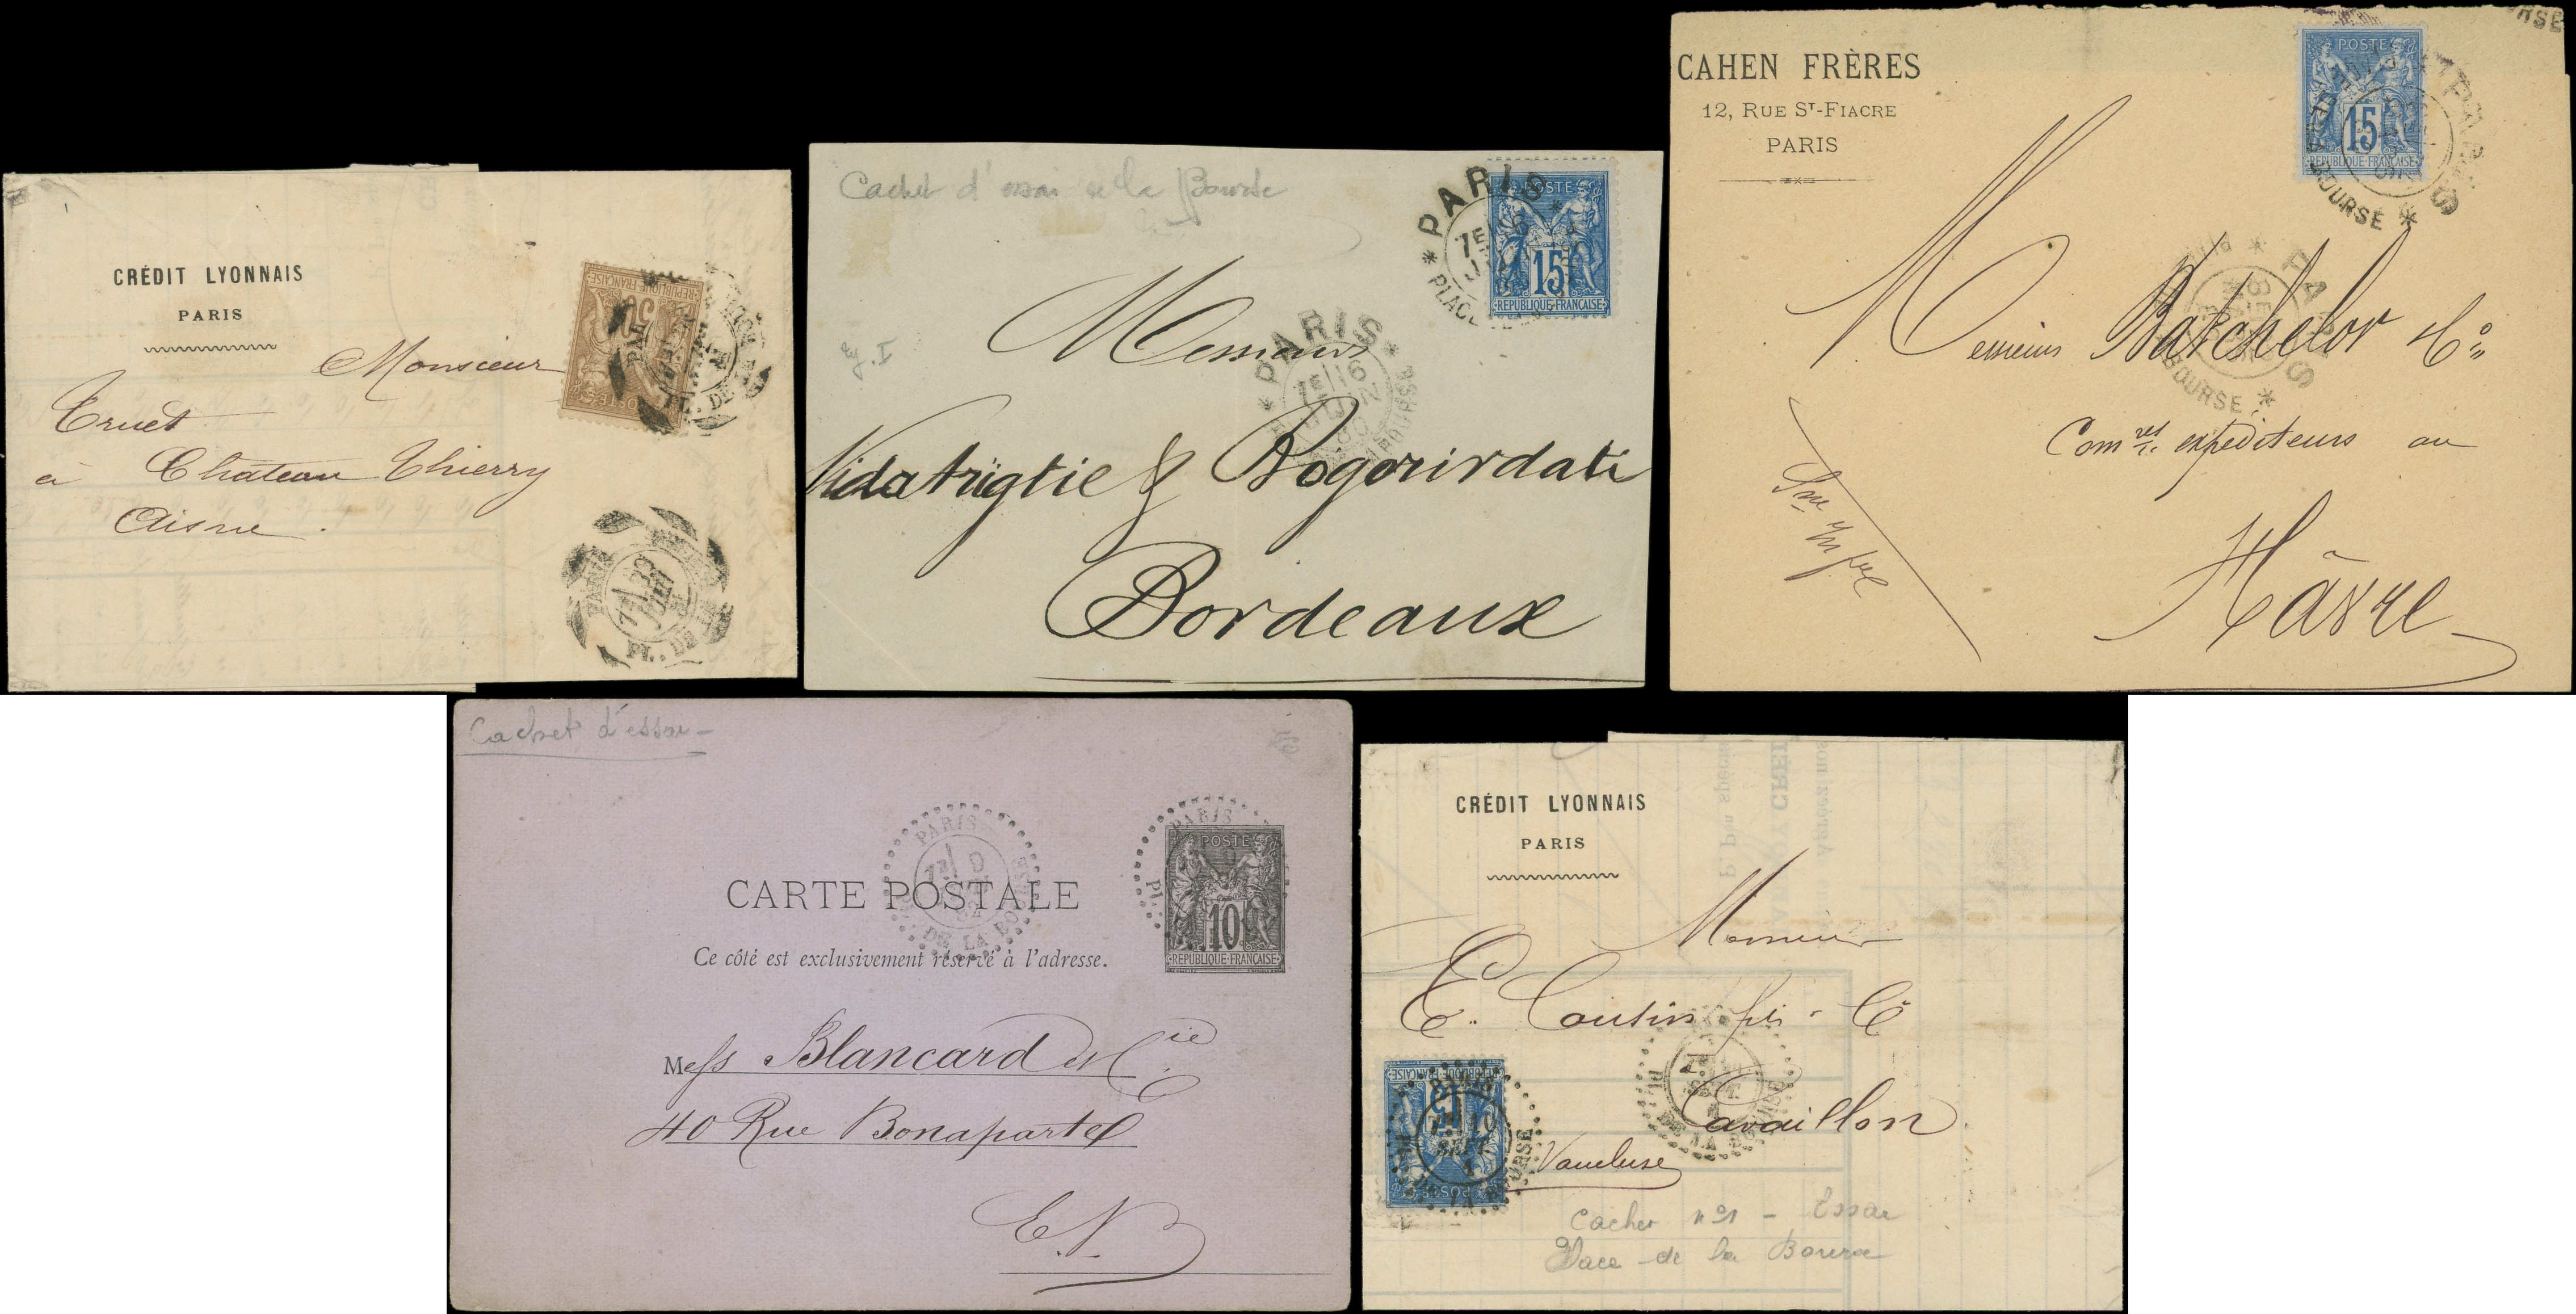 CRÉDIT LYONNAIS
PARIS
Monsieur
Truet
à Château Thierry
Aisne.
RÉPUBLIQUE FRANÇAISE
POSTES
PL. DE
Cachet d'essai de la Bourse
PARIS
PLACE
POSTES
15
REPUBLIQUE FRANÇAISE
Messieurs
PARIS
7E 16
JUIN
80
BOURSE
Bordeaux
CAHEN FRÈRES
12, RUE ST-FIACRE
PARIS
POSTES
15
REPUBLIQUE FRANÇAISE
BOURSE
Messieurs Batchelor & Co
PARIS
BOURSE
Comres expéditeurs au
Hâvre
Cachet d'essai
PARIS
DE LA BOURSE
PARIS
PL.
POSTES
10
REPUBLIQUE FRANÇAISE
CARTE POSTALE
Ce côté est exclusivement réservé à l'adresse.
Mess Blancard & Cie
40 Rue Bonaparte
E.V.
CRÉDIT LYONNAIS
PARIS
Monsieur
E. Coutin fils & Ce
PL.
DE LA BOURSE
REPUBLIQUE FRANÇAISE
15
PARIS
10
SEPT.
BOURSE
POSTES
Cavaillon
Vaucluse
Cachet n°1 - Essai
Place de la Bourse